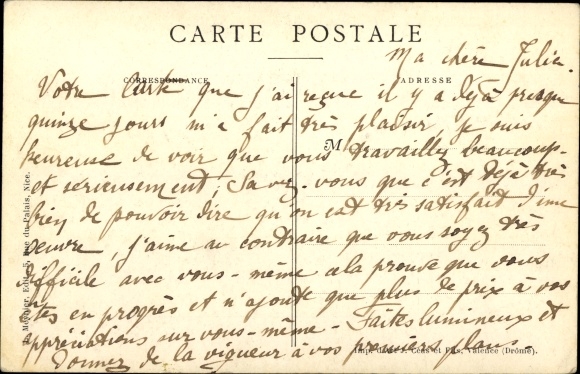 CARTE POSTALE
CORRESPONDANCE
ADRESSE
Ma chère Julie.
Votre carte que j'ai reçue il y a déjà presque
quinze jours m'a fait très plaisir, je suis
heureuse de voir que vous travaillez beaucoup
et sérieusement; Savez-vous que c'est déjà très
bien de pouvoir dire qu'on est très satisfait d'une
œuvre, j'aime au contraire que vous soyez très
difficile avec vous-même cela prouve que vous
êtes en progrès et n'ajoute que plus de prix à vos
appréciations sur vous-même. Faites lumineux et
Donnez de la vigueur à vos premiers plans.
M
Rue du Palais, Nice.
et Fils, Valence (Drôme).